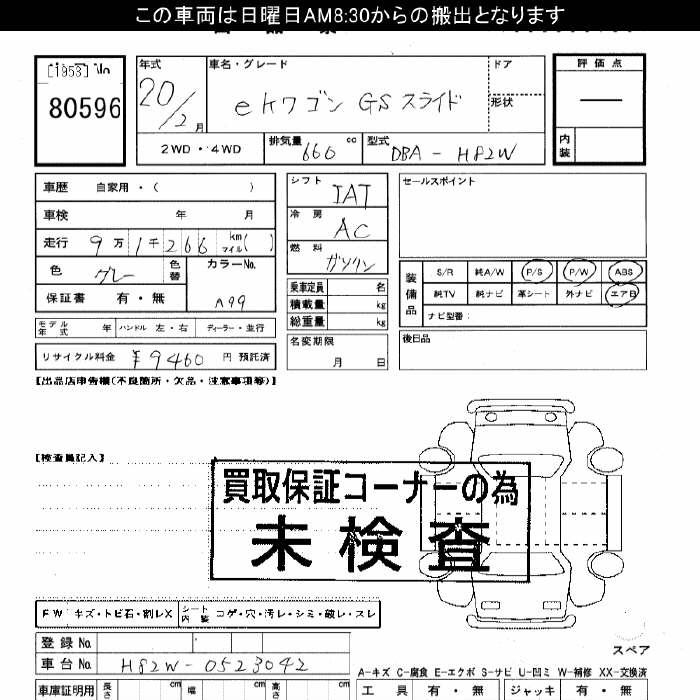 この車両は日曜日AM8:30からの搬出となります
[1953] No
80596
年式 車名・グレード ドア 評価点
20/2月 eKワゴン GSスライド 形状
2WD・4WD 排気量 660 cc 型式 DBA-H82W 内装
車歴 自家用・( ) シフト IAT セールスポイント
車検 年 月 冷房 AC
走行 9万1千266 km マイル( ) 燃料 ガソリン
色 グレー 色替 カラーNo. A99
保証書 有・無
乗車定員 名
積載量 kg
総重量 kg
装備品 S/R 純A/W P/S P/W ABS
純TV 純ナビ 革シート 外ナビ エアB
ナビ型番:
モデル年式 年 ハンドル 左・右 ディーラー・並行
名変期限 月 日
後日品
リサイクル料金 ¥9460 円 預託済
【出品店申告欄(不良箇所・欠品・注意事項等)】
【検査員記入】
買取保証コーナーの為
未検査
FW キズ・トビ石・割レX シート内装 コゲ・穴・汚レ・シミ・破レ・スレ
登録No.
車台No. H82W-0523042
スペア
A-キズ C-腐食 E-エクボ S-サビ U-凹ミ W-補修 XX-交換済
車庫証明用 長さ cm 幅 cm 高さ cm 工具 有・無 ジャッキ 有・無